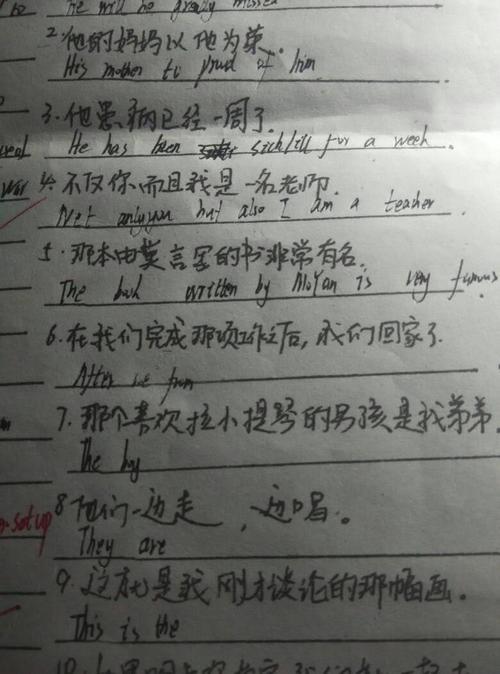 He will be greatly missed
2.他的妈妈以他为荣.
His mother to proud of him
3.他患病已经一周了.
He has been sick/ill for a week.
4.不仅你而且我是一名老师.
Not only you but also I am a teacher.
5.那本由莫言写的书非常有名.
The book written by MoYan is very famous.
6.在我们完成那项工作之后,我们回家了.
After we
7.那个喜欢拉小提琴的男孩是我弟弟.
The boy
set up
8 他们一边走,边唱。
They are
9.这就是我刚才谈论的那幅画。
This is the
10.